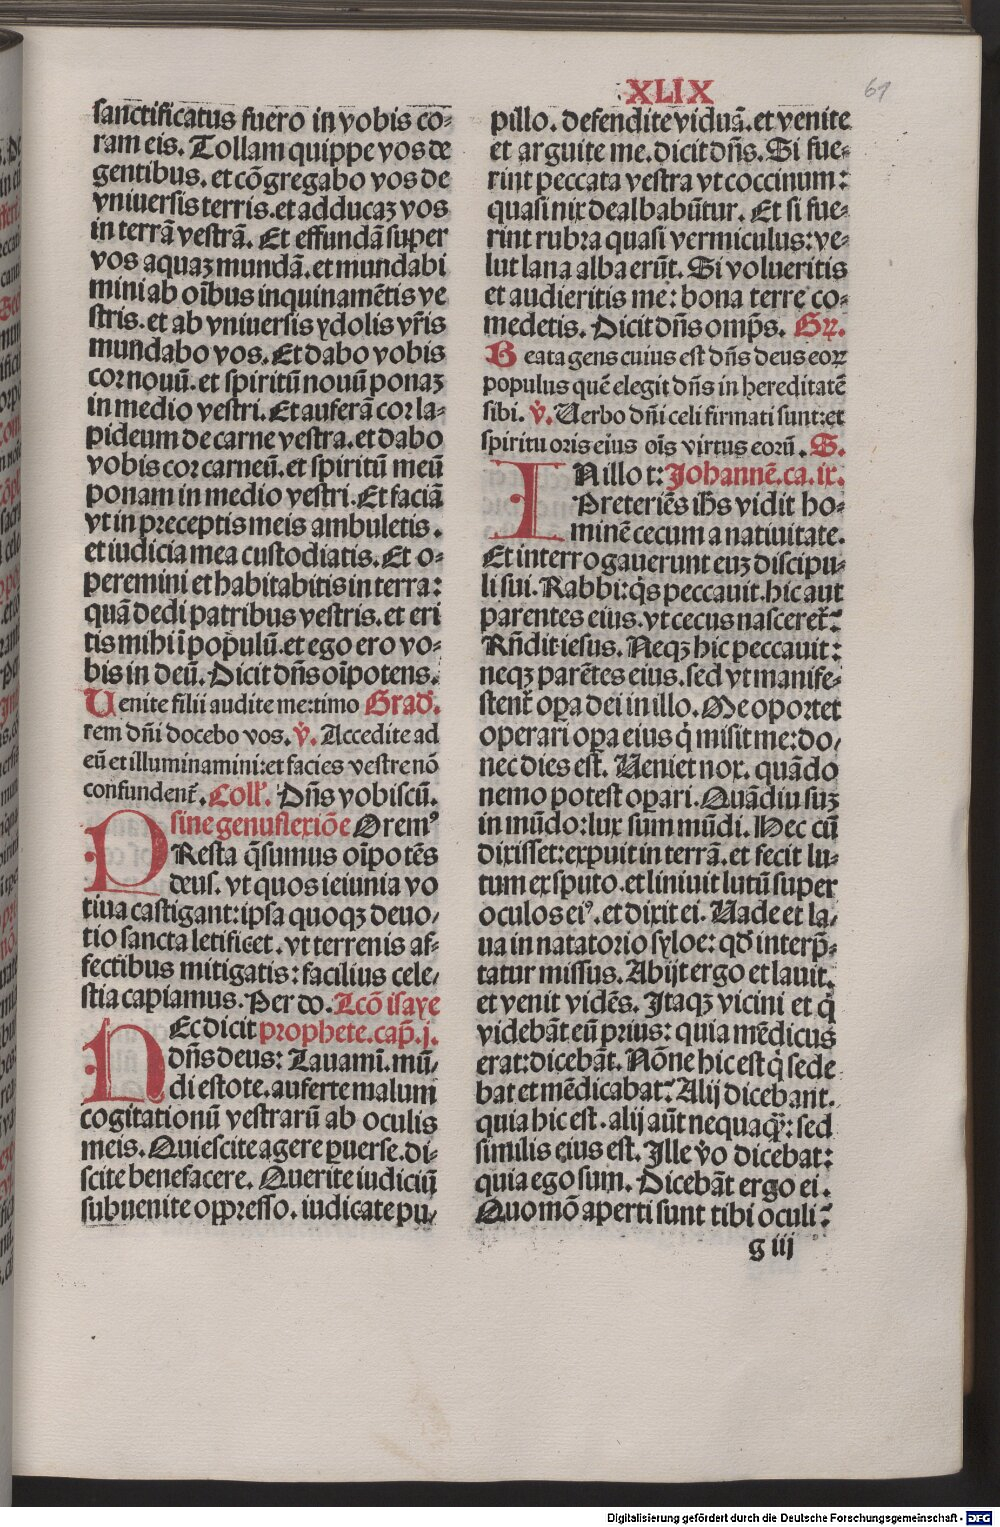 XLIX
61
sanctificatus fuero in vobis co⸗
ram eis. Tollam quippe vos de
gentibus. et cõgregabo vos de
vniuersis terris. et adducaꝫ vos
in terrã vestrã. Et effundã super
vos aquaꝫ mundã. et mundabi
mini ab oĩbus inquinamẽtis ve
stris. et ab vniuersis ydolis vr̃is
mundabo vos. Et dabo vobis
cor nouũ. et spiritũ nouũ ponaꝫ
in medio vestri. Et auferã cor la⸗
pideum de carne vestra. et dabo
vobis cor carneũ. et spiritũ meũ
ponam in medio vestri. Et faciã
vt in preceptis meis ambuletis.
et iudicia mea custodiatis. Et o⸗
peremini et habitabitis in terra:
quã dedi patribus vestris. et eri
tis mihi ĩ populũ. et ego ero vo⸗
bis in deũ. Dicit dñs oĩpotens.
Uenite filii audite me: timo Grad̃.
rem dñi docebo vos. v̾. Accedite ad
eũ et illuminamini: et facies vestre nõ
confundent̃. Coll̃. Dñs vobiscũ.
sine genuflexiõe Oremꝰ
PResta q̃sumus oĩpotẽs
deus. vt quos ieiunia vo
tiua castigant: ipsa quoqꝫ deuo/
tio sancta letificet. vt terrenis af⸗
fectibus mitigatis: facilius cele/
stia capiamus. Per do. Lcõ isaye
HEc dicit prophete. cap̃. j.
dñs deus: Lauamĩ. mũ/
di estote. auferte malum
cogitationũ vestrarũ ab oculis
meis. Quiescite agere ꝑuerse. di⸗
scite benefacere. Querite iudiciũ
subuenite oppresso. iudicate pu/
pillo. defendite viduã. et venite
et arguite me. dicit dñs. Si fue⸗
rint peccata vestra vt coccinum:
quasi nix dealbabũtur. Et si fue⸗
rint rubra quasi vermiculus: ve⸗
lut lana alba erũt. Si volueritis
et audieritis me: bona terre co⸗
medetis. Dicit dñs omp̃s. Gꝛ̃.
Beata gens cuius est dñs deus eoꝝ
populus quẽ elegit dñs in hereditatẽ
sibi. v̾. Uerbo dñi celi firmati sunt: et
spiritu oris eius oĩs virtus eorũ. S.
INillo t: Johannẽ. ca. ix.
Preteriẽs ihs vidit ho⸗
minẽ cecum a natiuitate.
Et interrogauerunt euꝫ discipu⸗
li sui. Rabbi: q̃s peccauit. hic aut
parentes eius. vt cecus nasceret̃:
Rñdit iesus. Neqꝫ hic peccauit:
neqꝫ parẽtes eius. sed vt manife⸗
stent̃ oꝑa dei in illo. Me oportet
operari oꝑa eius q̃ misit me: do/
nec dies est. Ueniet nox. quãdo
nemo potest oꝑari. Quãdiu suꝫ
in mũdo: lux sum mũdi. Hec cũ
dixisset: expuit in terrã. et fecit lu⸗
tum ex sputo. et liniuit lutũ super
oculos eiꝰ. et dixit ei. Uade et la/
ua in natatorio syloe: qd̃ interp̃⸗
tatur missus. Abijt ergo et lauit.
et venit vidẽs. Itaqꝫ vicini et q̃
videbãt eũ prius: quia mẽdicus
erat: dicebãt. Nõne hic est q̃ sede
bat et mẽdicabat: Alij dicebant.
quia hic est. alij aũt nequaq̃ꝫ: sed
similis eius est. Ille v̾o dicebat:
quia ego sum. Dicebãt ergo ei.
Quomõ aperti sunt tibi oculi:
g iij
Digitalisierung gefördert durch die Deutsche Forschungsgemeinschaft - DFG